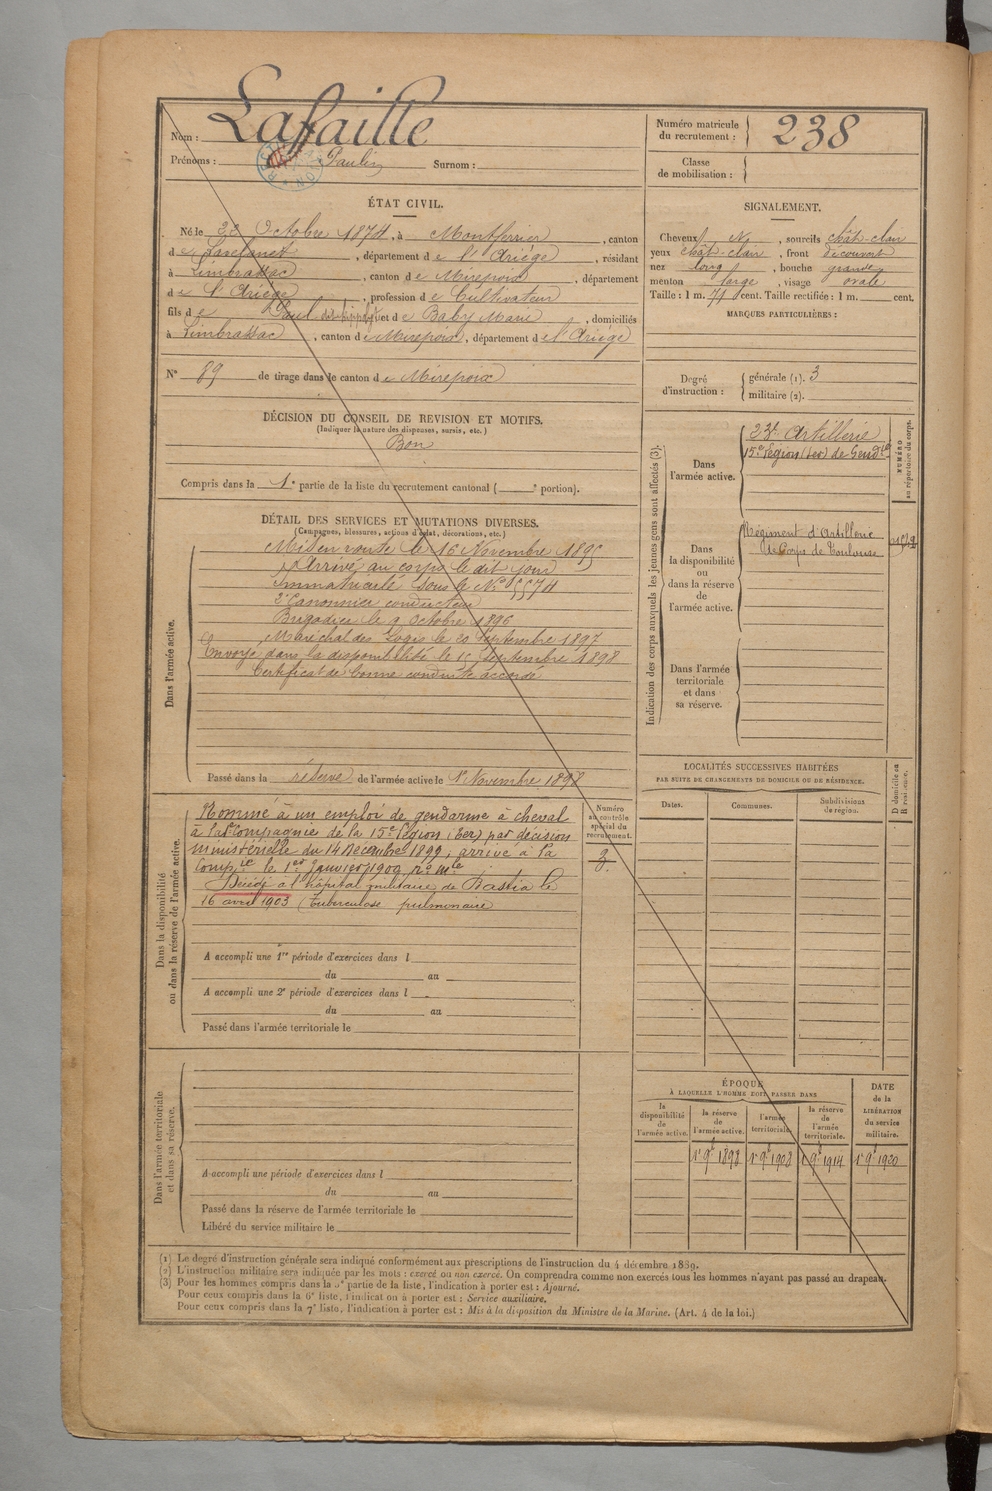 Nom : Lafaille
Prénoms : Paulin Surnom :
Numéro matricule du recrutement : 238
Classe de mobilisation :
ÉTAT CIVIL.
Né le 22 Octobre 1874, à Montferrier, canton
de Lavelanet, département de l'Ariège, résidant
à Limbrassac, canton de Mirepoix, département
de l'Ariège, profession de Cultivateur
fils de Paul et de Baby Marie, domiciliés
à Limbrassac, canton de Mirepoix, département de l'Ariège
N° 89 de tirage dans le canton de Mirepoix
SIGNALEMENT.
Cheveux N, sourcils chât-clair
yeux chât-clair, front découvert
nez long, bouche grande
menton large, visage ovale
Taille : 1 m. 71 cent. Taille rectifiée : 1 m. cent.
MARQUES PARTICULIÈRES :
Degré d'instruction : générale (1). 3
militaire (2).
DÉCISION DU CONSEIL DE REVISION ET MOTIFS.
(Indiquer la nature des dispenses, sursis, etc.)
Bon
Compris dans la 1e partie de la liste du recrutement cantonal ( e portion).
DÉTAIL DES SERVICES ET MUTATIONS DIVERSES.
(Campagnes, blessures, actions d'éclat, décorations, etc.)
Dans l'armée active.
Mis en route le 16 Novembre 1895
Arrivé au corps le dit jour
Immatriculé sous le N° 5574
2e Canonnier conducteur
Brigadier le 9 Octobre 1896
Maréchal des Logis le 20 Septembre 1897
Envoyé dans la disponibilité le Septembre 1898
Certificat de bonne conduite accordé
Passé dans la réserve de l'armée active le 1er Novembre 1898
Indication des corps auxquels les jeunes gens sont affectés (3).
NUMÉRO au répertoire du corps.
Dans l'armée active.
23e Artillerie
15e Légion (ter) de Gendie
Dans la disponibilité ou dans la réserve de l'armée active.
Régiment d'Artillerie
de Corps de Toulouse
Dans l'armée territoriale et dans sa réserve.
LOCALITÉS SUCCESSIVES HABITÉES
PAR SUITE DE CHANGEMENTS DE DOMICILE OU DE RÉSIDENCE.
Dates. Communes. Subdivisions de région. D domicile ou R résidence.
Dans la disponibilité ou dans la réserve de l'armée active.
Numéro au contrôle spécial du recrutement.
3.
Nommé à un emploi de gendarme à cheval
à la Compagnie de la 15e Légion (ter) par décision
ministérielle du 14 Décembre 1899, arrivé à la
Compie le 1er Janvier 1900 no mle
Décédé à l'hôpital militaire de Bastia le
16 avril 1903 (Tuberculose pulmonaire
A accompli une 1re période d'exercices dans l
du au
A accompli une 2e période d'exercices dans l
du au
Passé dans l'armée territoriale le
Dans l'armée territoriale et dans sa réserve.
A accompli une période d'exercices dans l
du au
Passé dans la réserve de l'armée territoriale le
Libéré du service militaire le
ÉPOQUE
À LAQUELLE L'HOMME DOIT PASSER DANS
la disponibilité de l'armée active. la réserve de l'armée active. l'armée territoriale. la réserve de l'armée territoriale.
DATE de la LIBÉRATION du service militaire.
1er 9bre 1898 1er 9bre 1908 1er 9bre 1914 1er 9bre 1920
(1) Le degré d'instruction générale sera indiqué conformément aux prescriptions de l'instruction du 4 décembre 1889.
(2) L'instruction militaire sera indiquée par les mots : exercé ou non exercé. On comprendra comme non exercés tous les hommes n'ayant pas passé au drapeau.
(3) Pour les hommes compris dans la 5e partie de la liste, l'indication à porter est : Ajourné.
Pour ceux compris dans la 6e liste, l'indication à porter est : Service auxiliaire.
Pour ceux compris dans la 7e liste, l'indication à porter est : Mis à la disposition du Ministre de la Marine. (Art. 4 de la loi.)